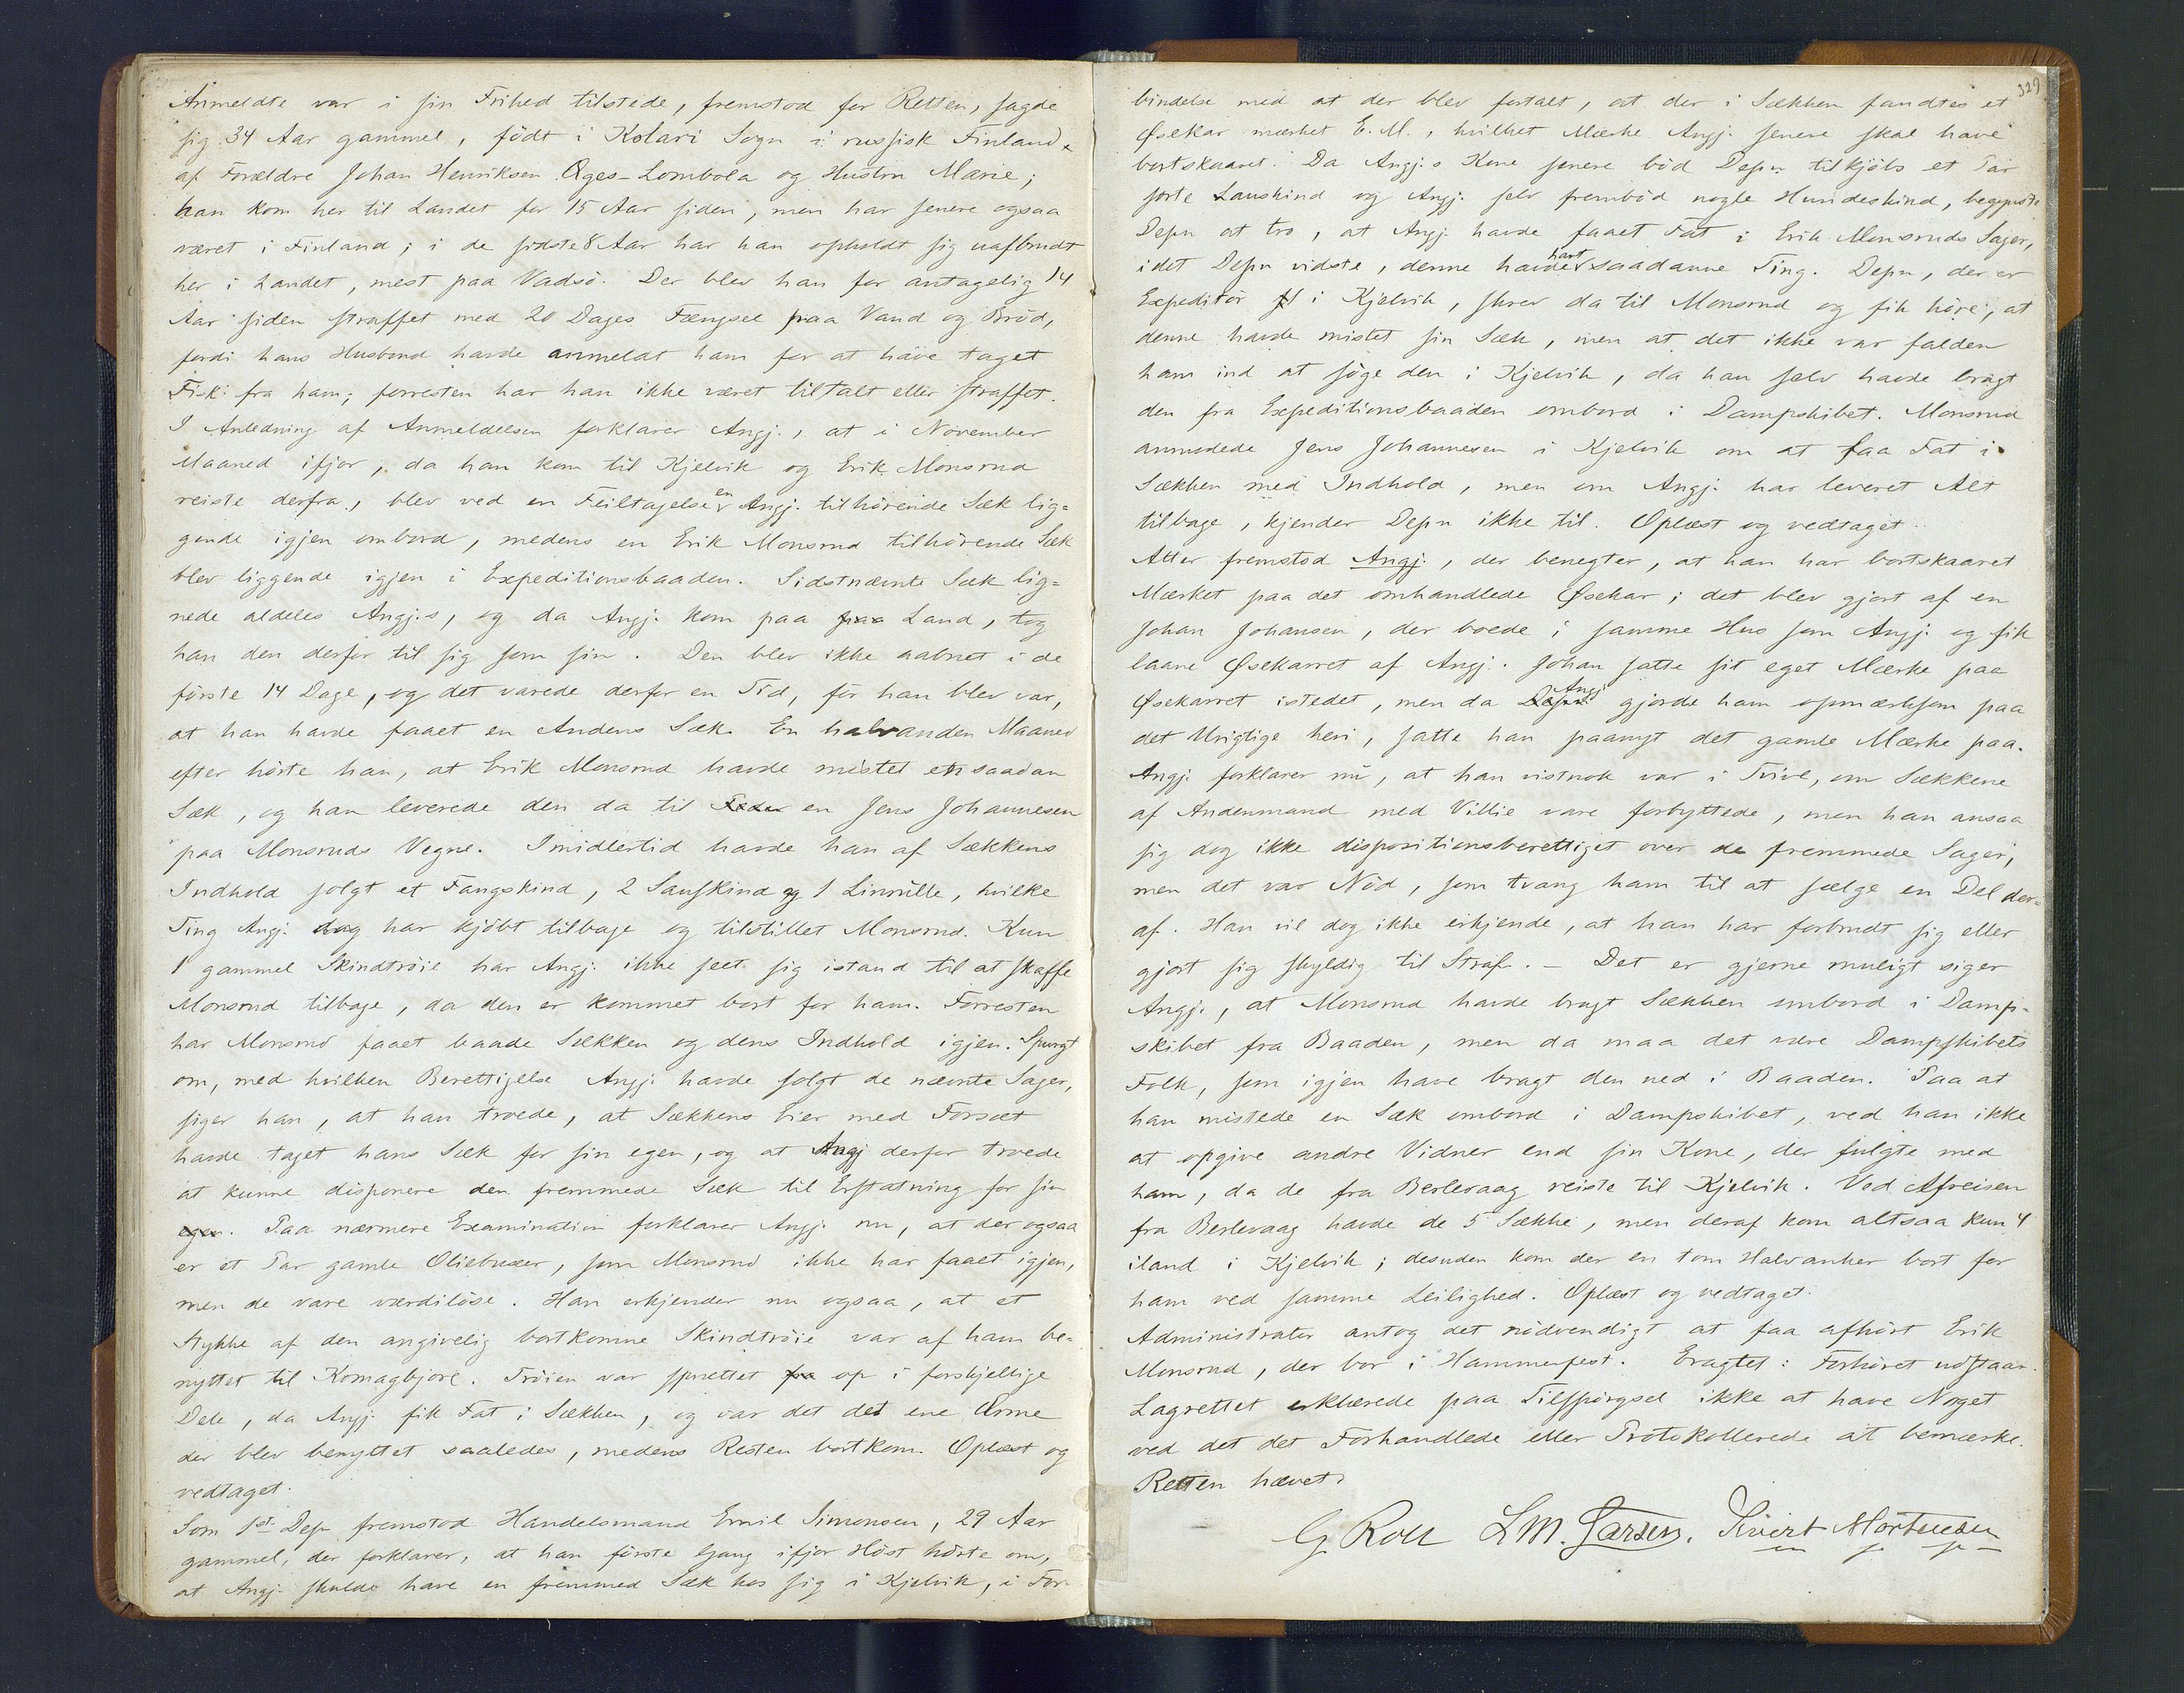 Anmeldte var i sin Frihed tilstede, fremstod for Retten, sagde
sig 34 Aar gammel, født i Kolari Sogn i russisk Finland
af Forældre Johan Henriksen Æges-Lombola og Hustru Marie;
han kom her til Landet for 15 Aar siden, men har senere ogsaa
været i Finland; i de sidste 8 Aar har han opholdt sig uafbrudt
her i Landet, mest paa Vadsö. Der blev han for antagelig 14
Aar siden straffet med 20 Dages Fængsel paa Vand og Bröd,
fordi hans Husbond havde anmeldt ham for at have taget
Fisk fra ham; forresten har han ikke været tiltalt eller straffet.
I Anledning af Anmeldelsen forklarer Angj., at i November
Maaned ifjor, da han kom til Kjelvik og Erik Monsrud
reiste derfra, blev ved en Feiltagelse en Angj. tilhörende Sæk lig=
gende igjen ombord, medens en Erik Monsrud tilhörende Sæk
blev liggende igjen i Expeditionsbaaden. Sidstnævnte Sæk lig=
nede aldeles Angj.s, og da Angj. kom paa paa Land, tog
han den derfor til sig som sin. Den blev ikke aabnet i de
förste 14 Dage, og det varede derfor en Tid, för han blev var,
at han havde faaet en Andens Sæk. En halvanden Maaned
efter hörte han, at Erik Monsrud havde mistet en saadan
Sæk, og han leverede den da til en Jens Johannesen
paa Monsruds Vegne. Imidlertid havde han af Sækkens
Indhold solgt et Fangskind, 2 Sauskind og 1 Linrulle, hvilke
Ting Angj. dog har kjöbt tilbage og tilstillet Monsrud. Kun
1 gammel Skindtröie har Angj. ikke seet sig istand til at skaffe
Monsrud tilbage, da den er kommet bort for ham. Forresten
har Monsrud faaet baade Sækken og dens Indhold igjen. Spurgt
om, med hvilken Berettigelse Angj. havde solgt de nævnte Sager,
siger han, at han troede, at Sækkens Eier med Forsæt
havde taget hans Sæk for sin egen, og at Angj derfor troede
at kunne disponere den fremmede Sæk til Erstatning for sin
egen. Paa nærmere Examination forklarer Angj. nu, at der ogsaa
er et Par gamle Oliebuxer, som Monsrud ikke har faaet igjen,
men de vare værdilöse. Han erkjender nu ogsaa, at et
Stykke af den angivelig bortkomne Skindtröie var af ham be=
nyttet til Komagbjöre. Tröien var sprættet fra op i forskjellige
Dele, da Angj. fik Fat i Sækken, og var det det ene Ærme
der blev benyttet saaledes, medens Resten bortkom. Oplæst og
vedtaget.
Som 1st Dep fremstod Handelsmand Emil Simonsen, 29 Aar
gammel, der forklarer, at han förste Gang ifjor Höst hörte om,
at Angj. skulde have en fremmed Sæk hos sig i Kjelvik, i For-
329
bindelse med at der blev fortalt, at der i Sækken fandtes et
Øsekar mærket E. M., hvilket Mærke Angj. senere skal have
bortskaaret. Da Angj.s Kone senere böd Depn tilkjöbs et Par
sorte Lauskind og Angj. selv fremböd nogle Hundeskind, begyndte
Depn at tro, at Angj. havde faaet Fat i Erik Monsruds Sager,
idet Depn vidste, denne havde havt saadanne Ting. Depn, der er
Expeditör i Kjelvik, skrev da til Monsrud og fik höre, at
denne havde mistet sin Sæk, men at det ikke var falden
ham ind at söge den i Kjelvik, da han selv havde bragt
den fra Expeditionsbaaden ombord i Dampskibet. Monsrud
anmodede Jens Johannesen i Kjelvik om at faa Fat i
Sækken med Indhold, men om Angj. har leveret Alt
tilbage, kjender Depn ikke til. Oplæst og vedtaget.
Atter fremstod Angj., der benegter, at han har bortskaaret
Mærket paa det omhandlede Øsekar; det blev gjort af en
Johan Johansen, der boede i samme Hus som Angj. og fik
laane Øsekarret af Angj. Johan satte sit eget Mærke paa
Øsekarret istedet, men da Depn Angj gjorde ham opmærksom paa
det Urigtige heri, satte han paanyt det gamle Mærke paa.
Angj. forklarer nu, at han vistnok var i Tvivl, om Sækkene
af Andenmand med Villie vare forbyttede, men han ansaa
sig dog ikke dispositionsberettiget over de fremmede Sager,
men det var Nöd, som tvang ham til at sælge en Del der=
af. Han vil dog ikke erkjende, at han har forbrudt sig eller
gjort sig skyldig til Straf. – Det er gjerne muligt siger
Angj., at Monsrud havde bragt Sækken ombord i Damp-
skibet fra Baaden, men da maa det være Dampskibets
Folk, som igjen have bragt den ned i Baaden. Paa at
han mistede en Sæk ombord i Dampskibet, ved han ikke
at opgive andre Vidner end sin Kone, der fulgte med
ham, da de fra Berlevaag reiste til Kjelvik. Ved Afreisen
fra Berlevaag havde de 5 Sække, men deraf kom altsaa kun 4
iland i Kjelvik; desuden kom der en tom Halvanker bort for
ham ved samme Leilighed. Oplæst og vedtaget.
Administrator antog det nödvendigt at faa afhört Erik
Monsrud, der bor i Hammerfest. Eragtet: Forhöret udstaar.
Lagrettet erklærede paa Tilspörgsel ikke at have Noget
ved det det Forhandlede eller Protokollerede at bemærke.
Retten hævet.
G. Roll L M. Larsen. Sivert Mortensen